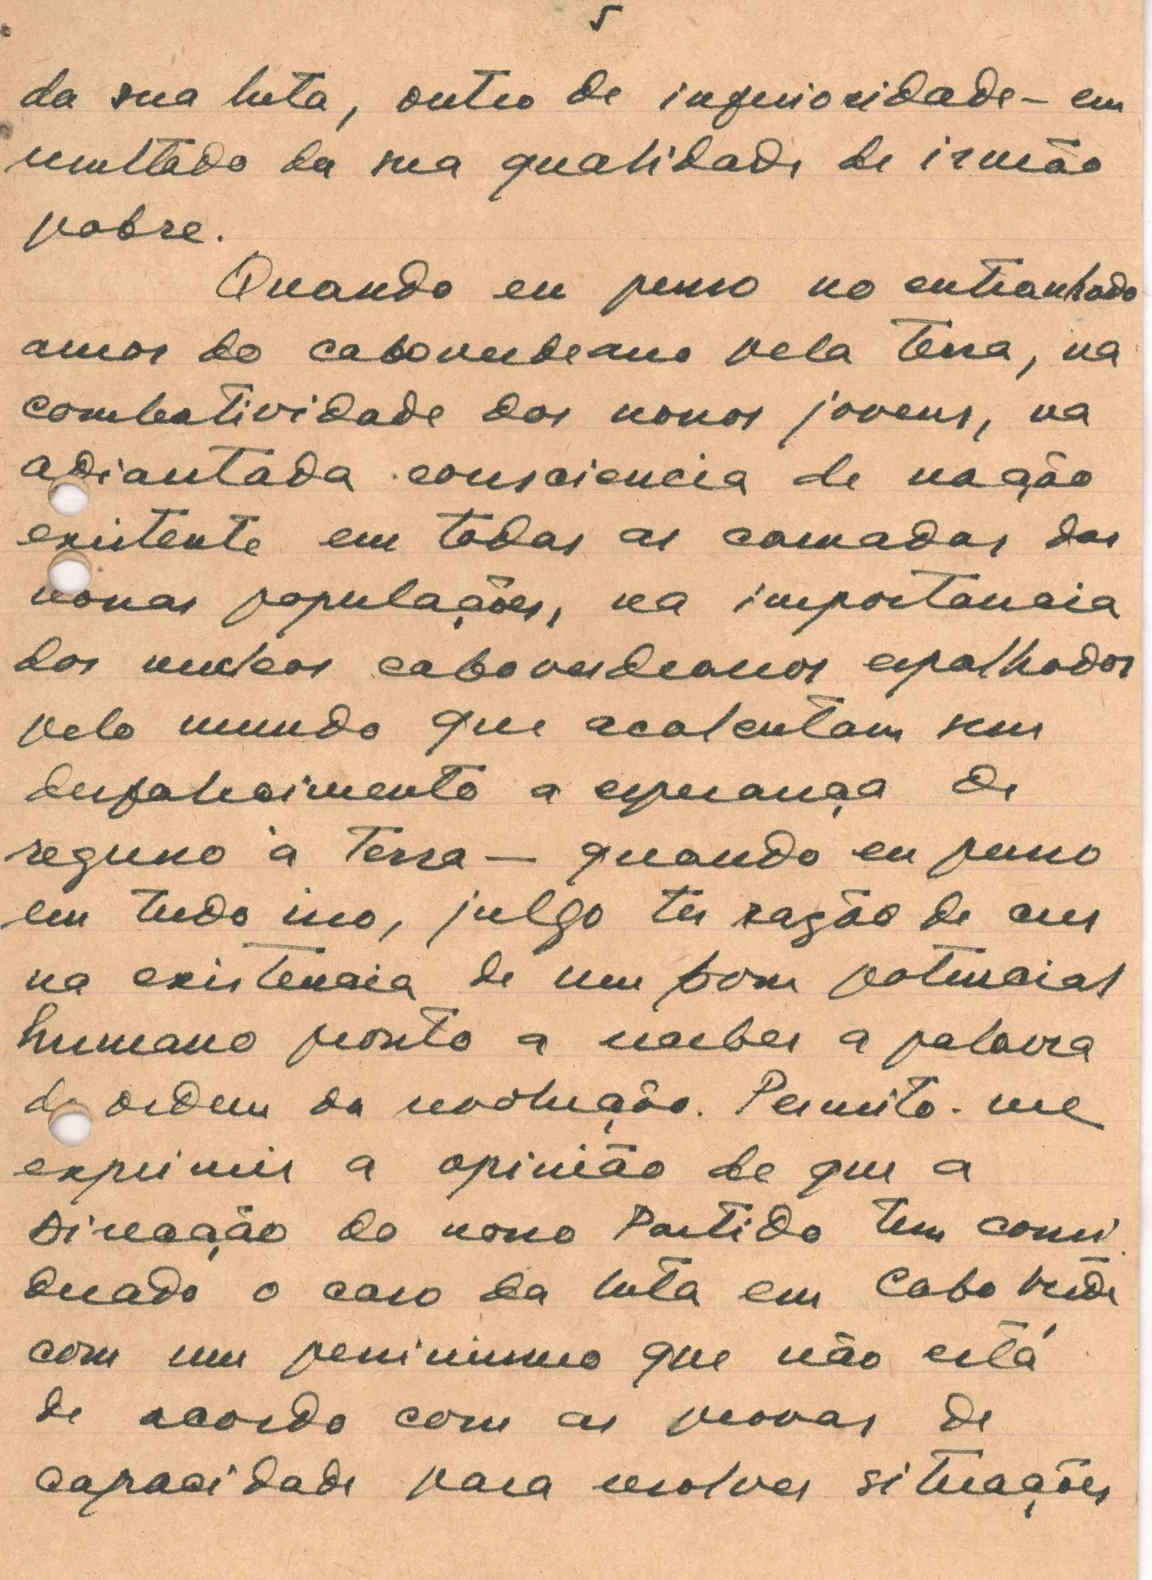 5
da sua luta, outro de inferioridade - em
resultado da sua qualidade de irmão
pobre.
Quando eu penso no entranhado
amor do caboverdeano pela terra, na
combatividade dos nossos jovens, na
adiantada consciencia de nação
existente em todas as camadas das
nossas populações, na importancia
dos nucleos caboverdeanos espalhados
pelo mundo que acalentam sem
desfalecimento a esperança de
regresso à terra — quando eu penso
em tudo isso, julgo ter razão de crer
na existencia de um bom potencial
humano pronto a receber a palavra
de ordem da revolução. Permito-me
exprimir a opinião de que a
Direcção do nosso Partido tem consi
derado o caso da luta em Cabo Verde
com um pessimismo que não está
de acordo com as provas de
capacidade para resolver situações